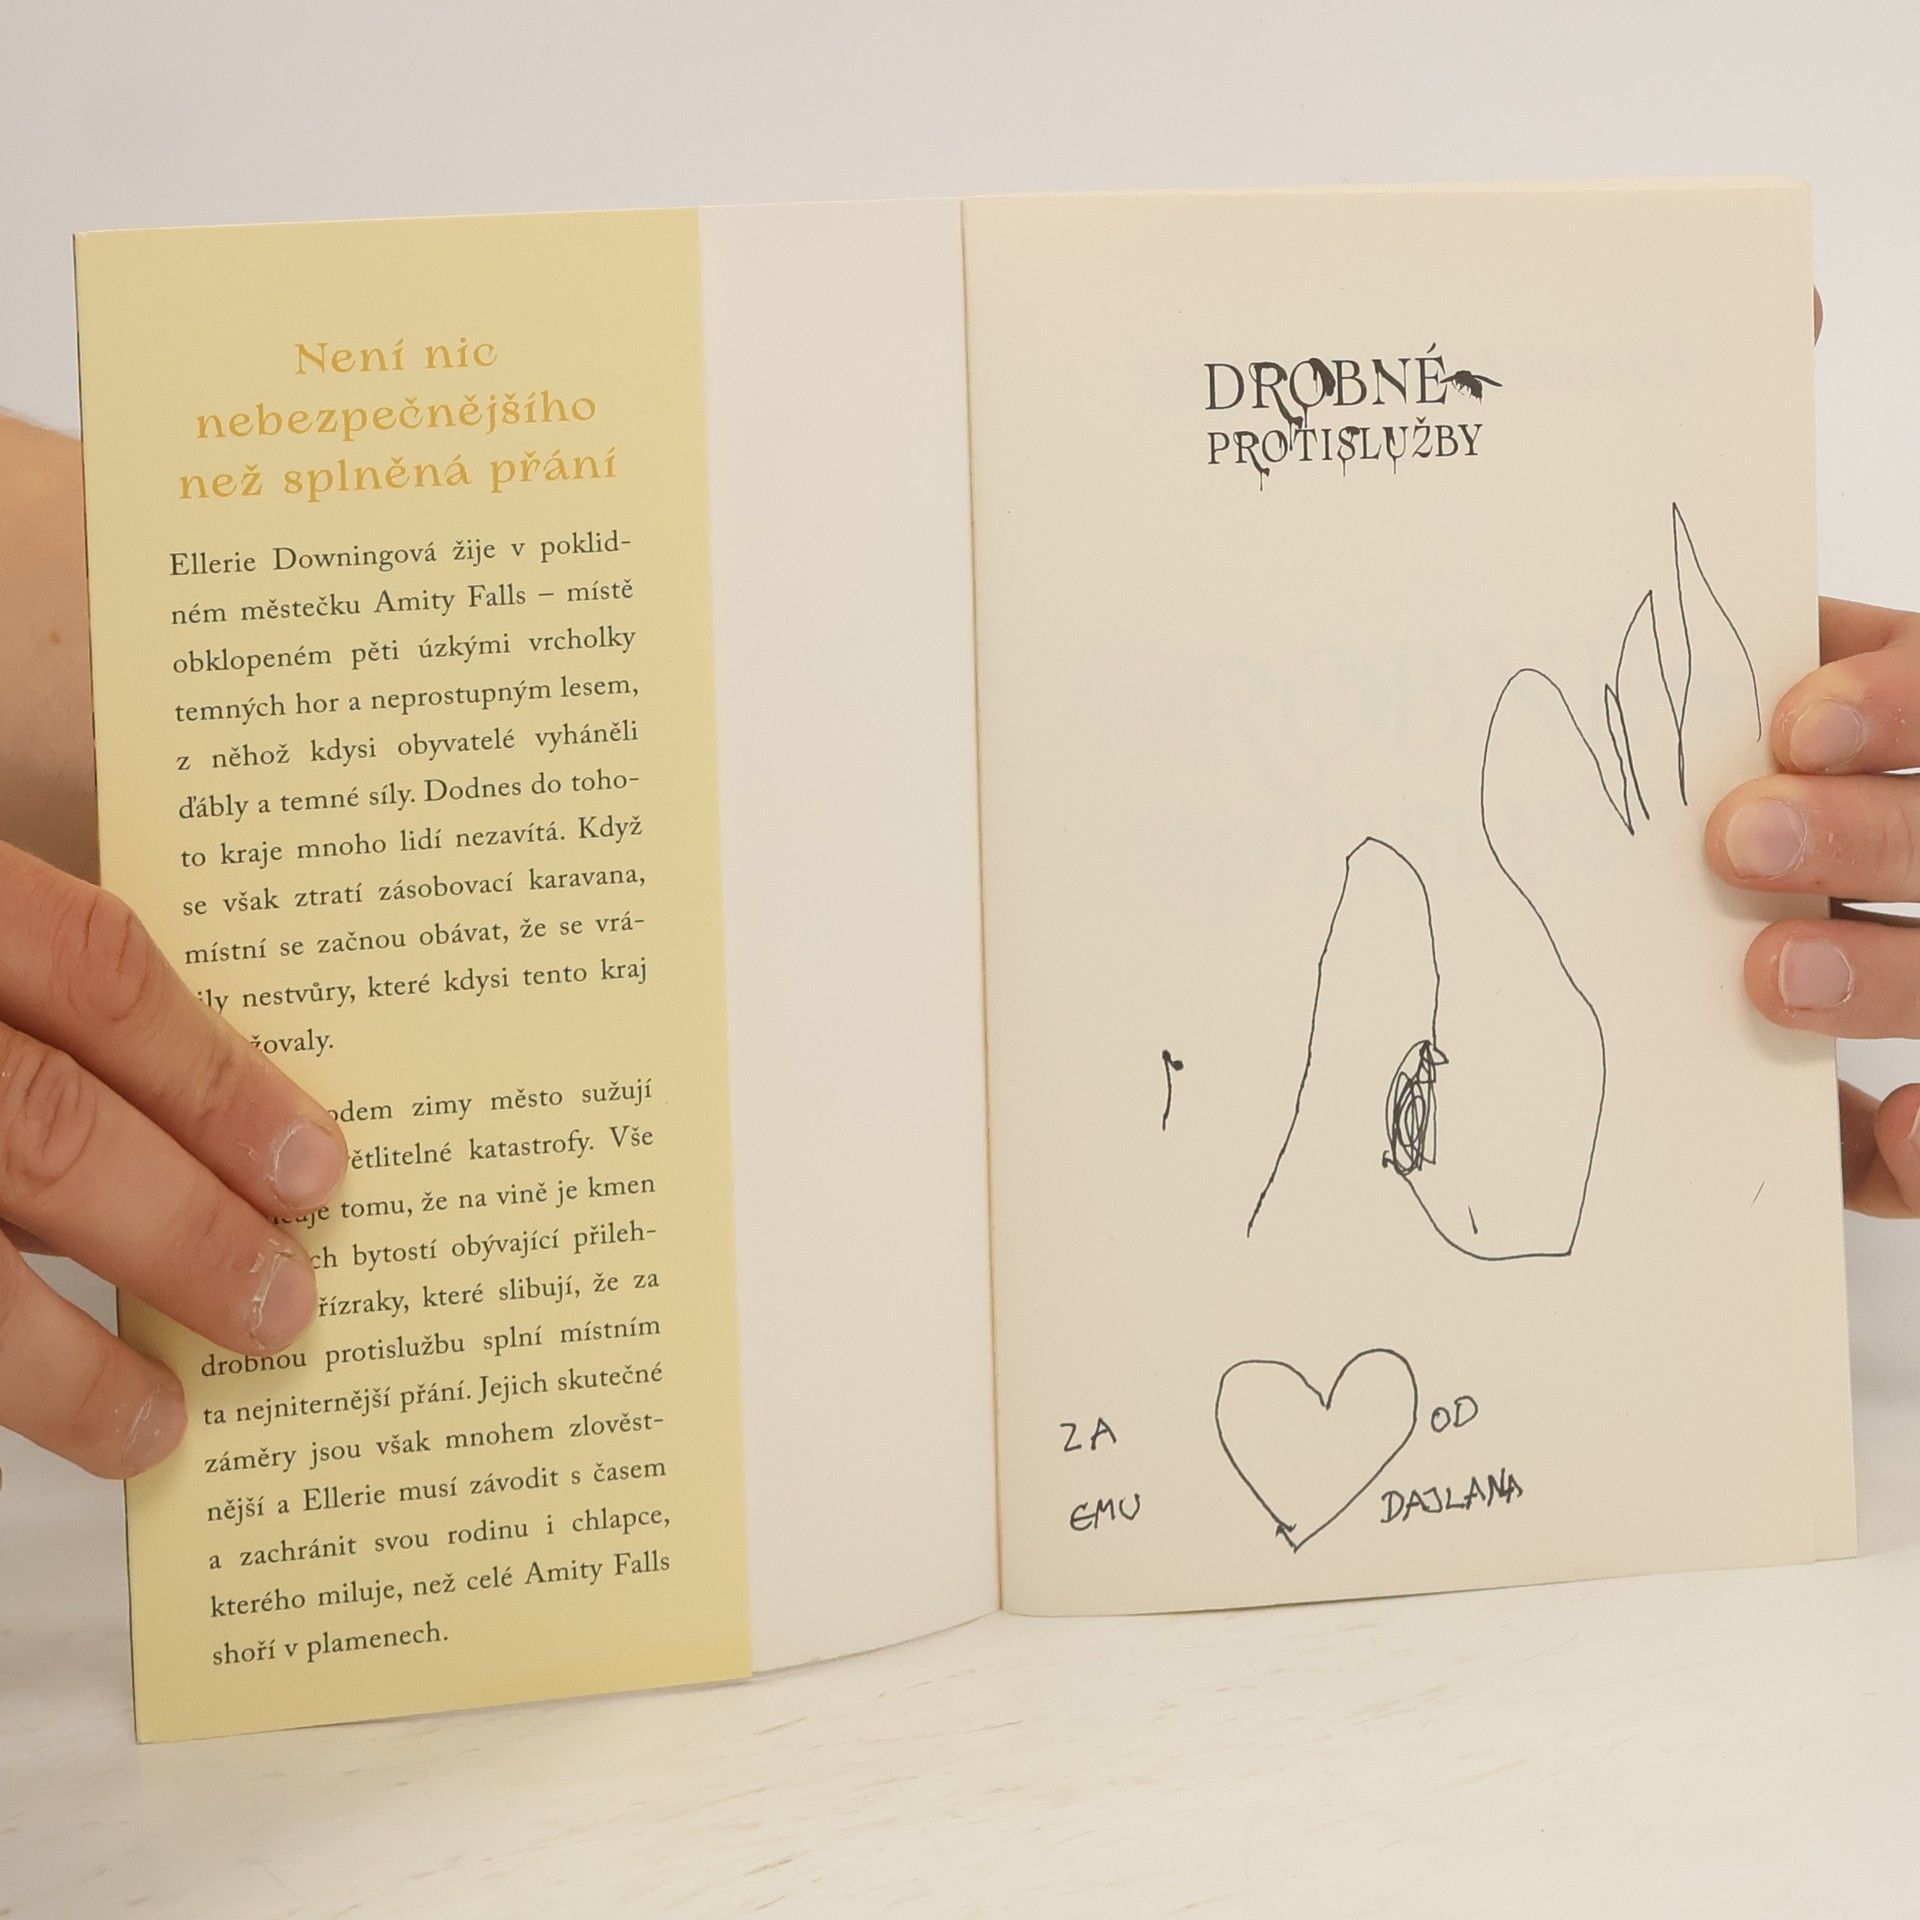 Není nic
nebezpečnějšího
než splněná přání
Ellerie Downingová žije v poklid-
ném městečku Amity Falls – místě
obklopeném pěti úzkými vrcholky
temných hor a neprostupným lesem,
z něhož kdysi obyvatelé vyháněli
ďábly a temné síly. Dodnes do toho-
to kraje mnoho lidí nezavítá. Když
se však ztratí zásobovací karavana,
místní se začnou obávat, že se vrá-
nestvůry, které kdysi tento kraj
zimy město sužují
katastrofy. Vše
tomu, že na vině je kmen
bytostí obývající přileh-
které slibují, že za
drobnou protislužbu splní místním
ta nejniternější přání. Jejich skutečné
záměry jsou však mnohem zlověst-
nější a Ellerie musí závodit s časem
a zachránit svou rodinu i chlapce,
kterého miluje, než celé Amity Falls
shoří v plamenech.
DROBNÉ
PROTISLUŽBY
ZA OD
EMU DAJLANA